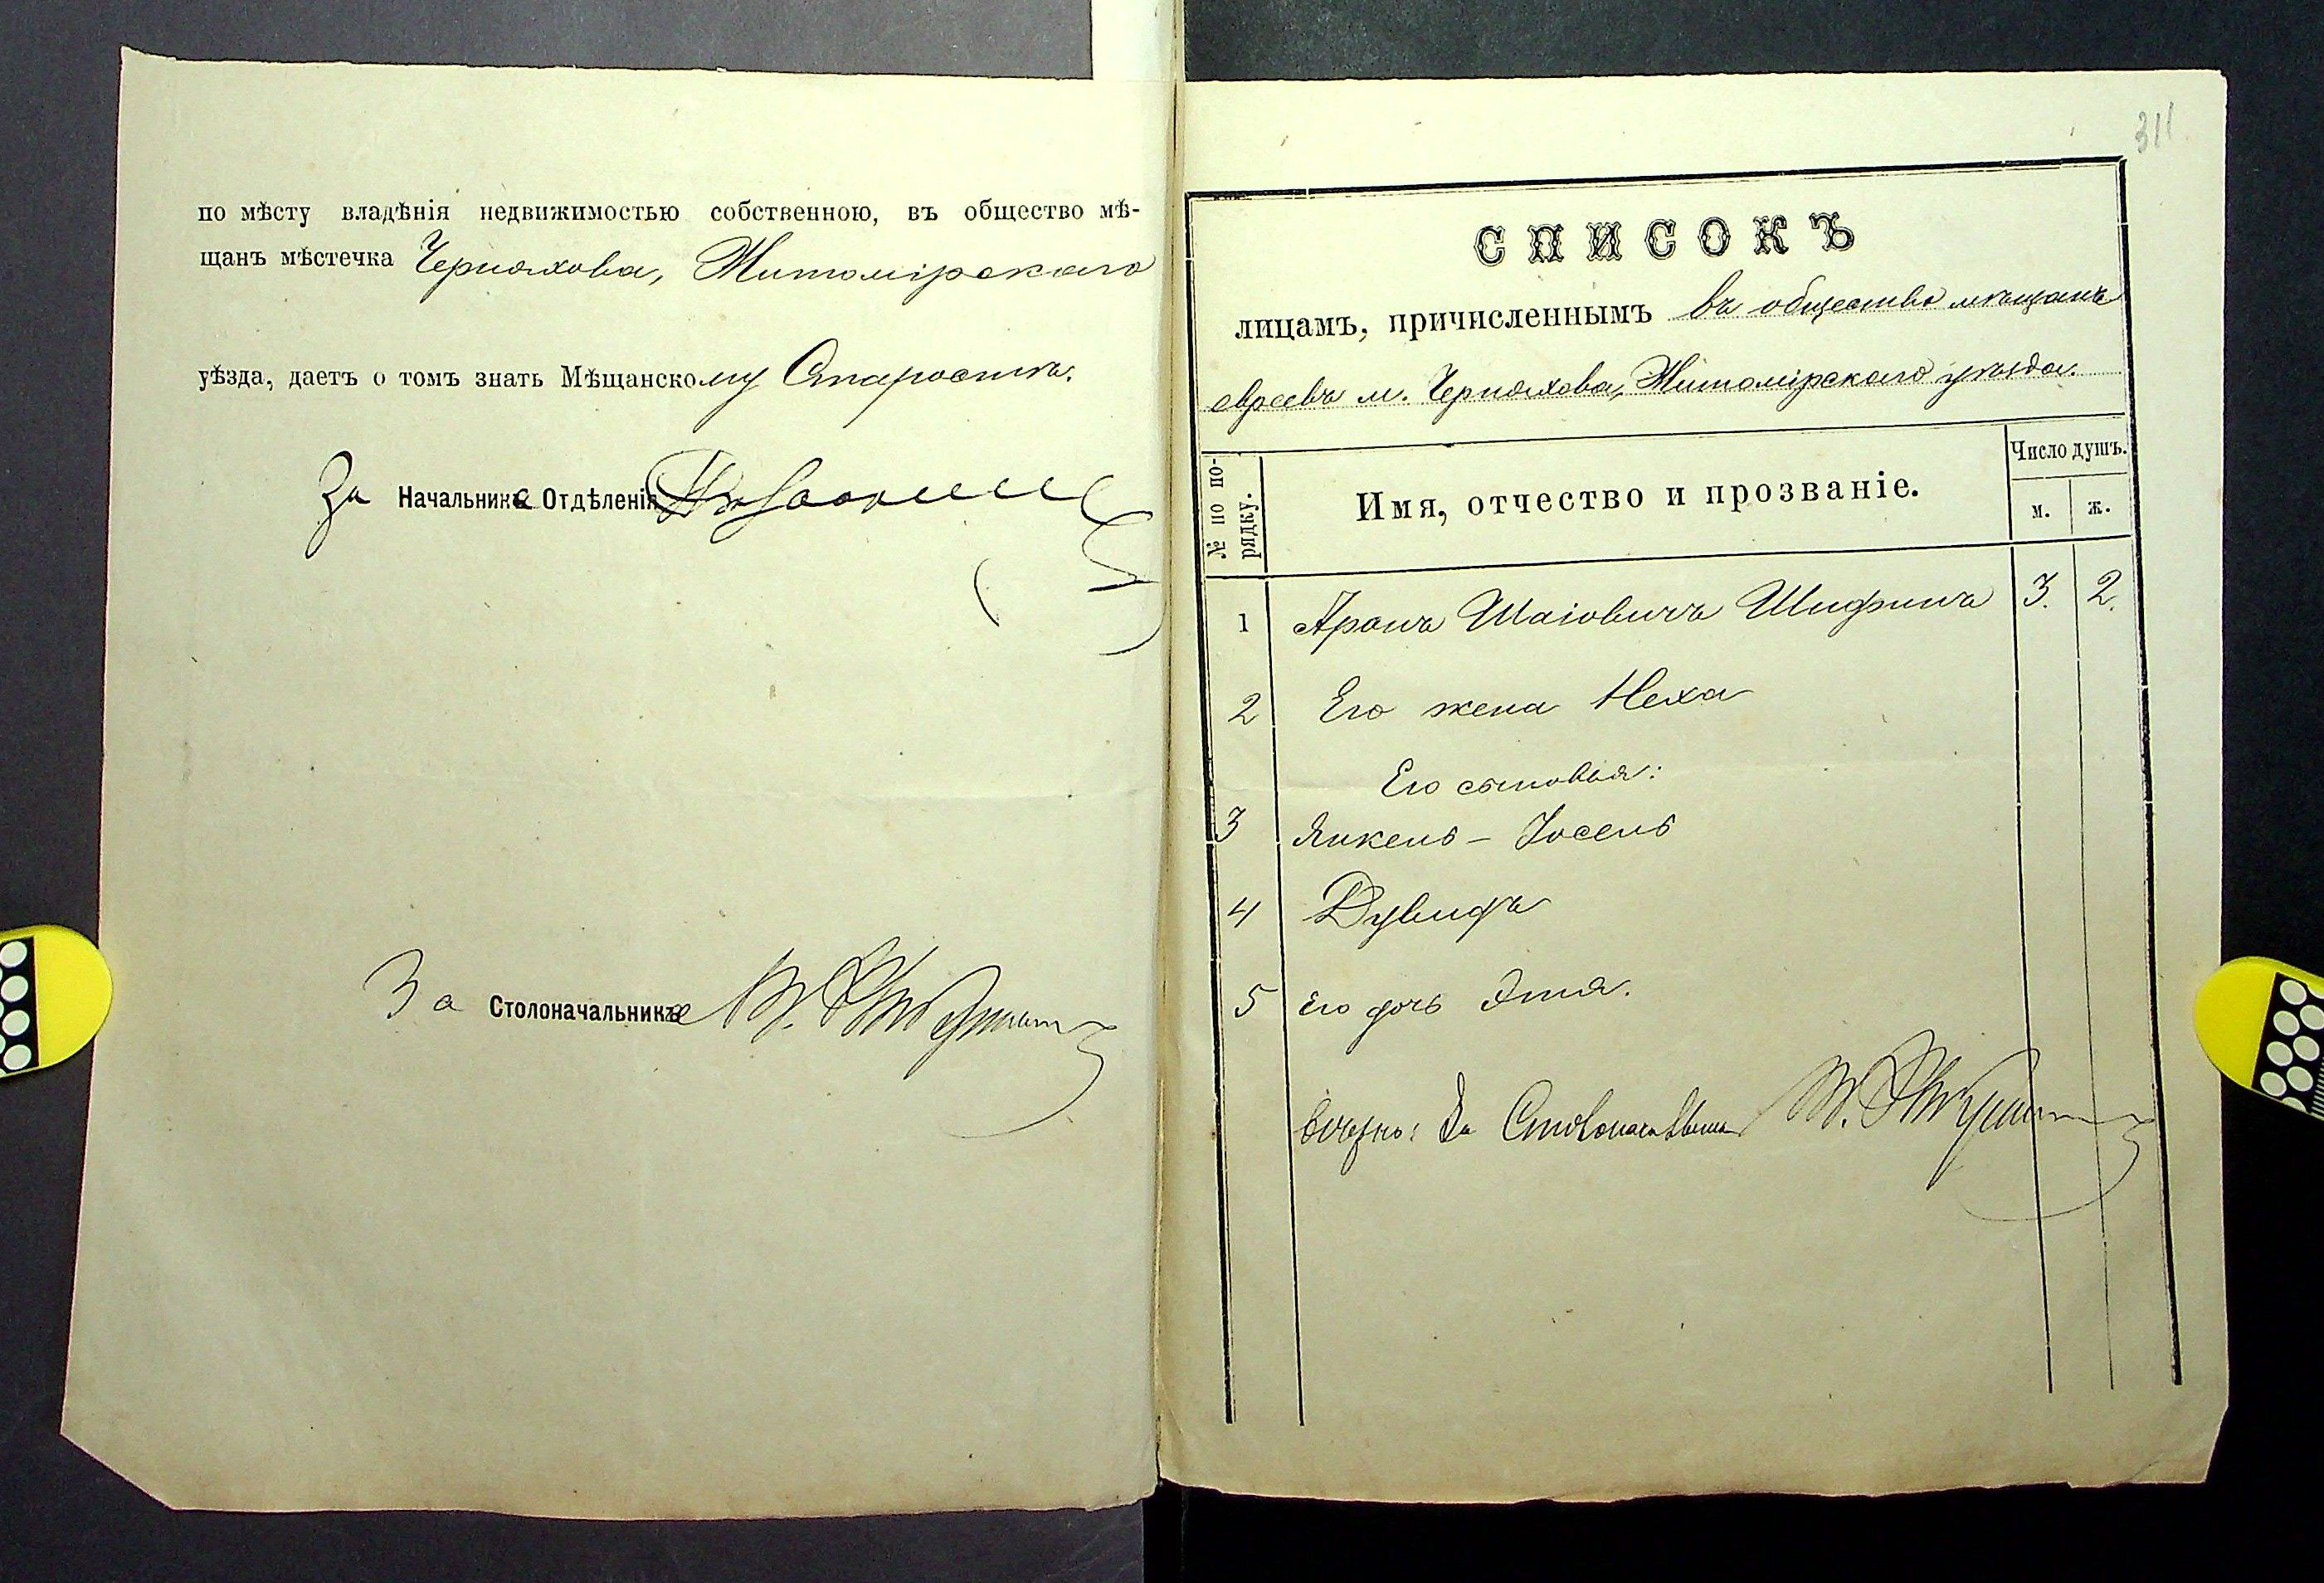 по мѣсту владѣнія недвижимостью собственною, въ общество мѣ-
щанъ мѣстечка Черняхова, Житомірскаго
уѣзда, даетъ о томъ знать Мѣщанскому Старостѣ.
За Начальника Отдѣленія
За Столоначальника
311
СПИСОКЪ
лицамъ, причисленнымъ въ общество мѣщанъ
евреевъ м. Черняхова, Житомірскаго уѣзда.
№ по по-
рядку.
Имя, отчество и прозваніе.
Число душъ.
м. ж.
1 Аронъ Шаіовичъ Шифринъ 3. 2.
2 Его жена Неха
Его сыновья:
3 Янкель - Іосель
4 Дувидъ
5 Его дочь Этя.
Вѣрно: За Столоначальника